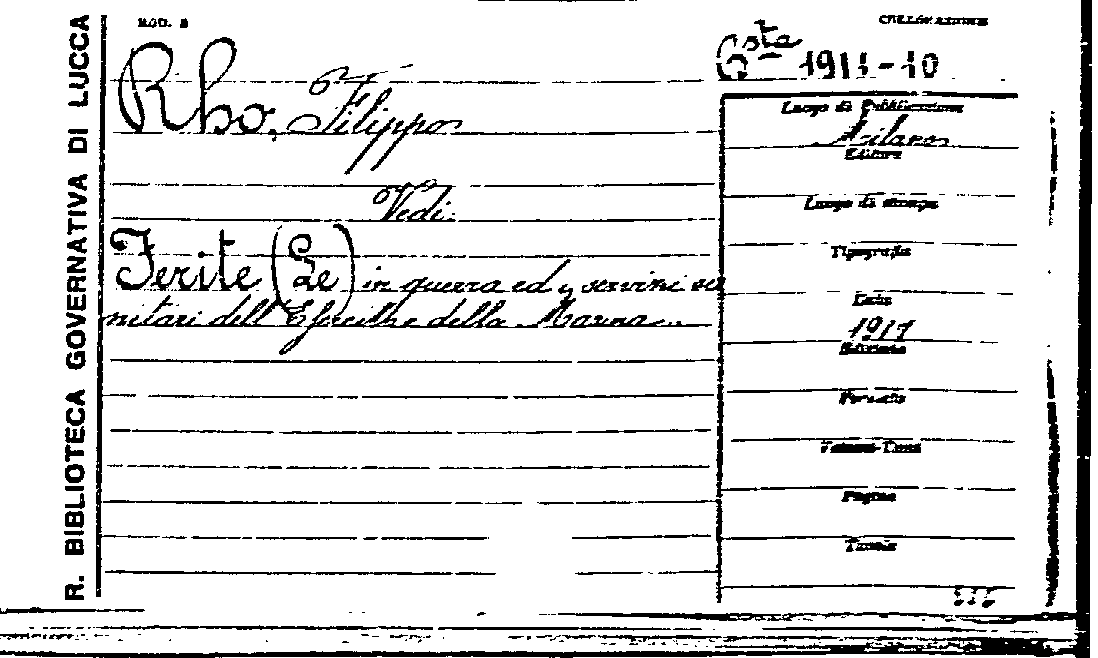 R. BIBLIOTECA GOVERNATIVA DI LUCCA
MOD.
COLLOCAZIONE
Rho, Filippo
Vedi:
Ferite (Le) in guerra ed i servizi sa
nitari dell'Esercito e della Marina
Busta 1911-10
Luogo di Pubblicazione
Milano
Editore
Luogo di stampa
Tipografia
Data
1917
Edizione
Formato
Volumi-Tomi
Pagine
Tavole